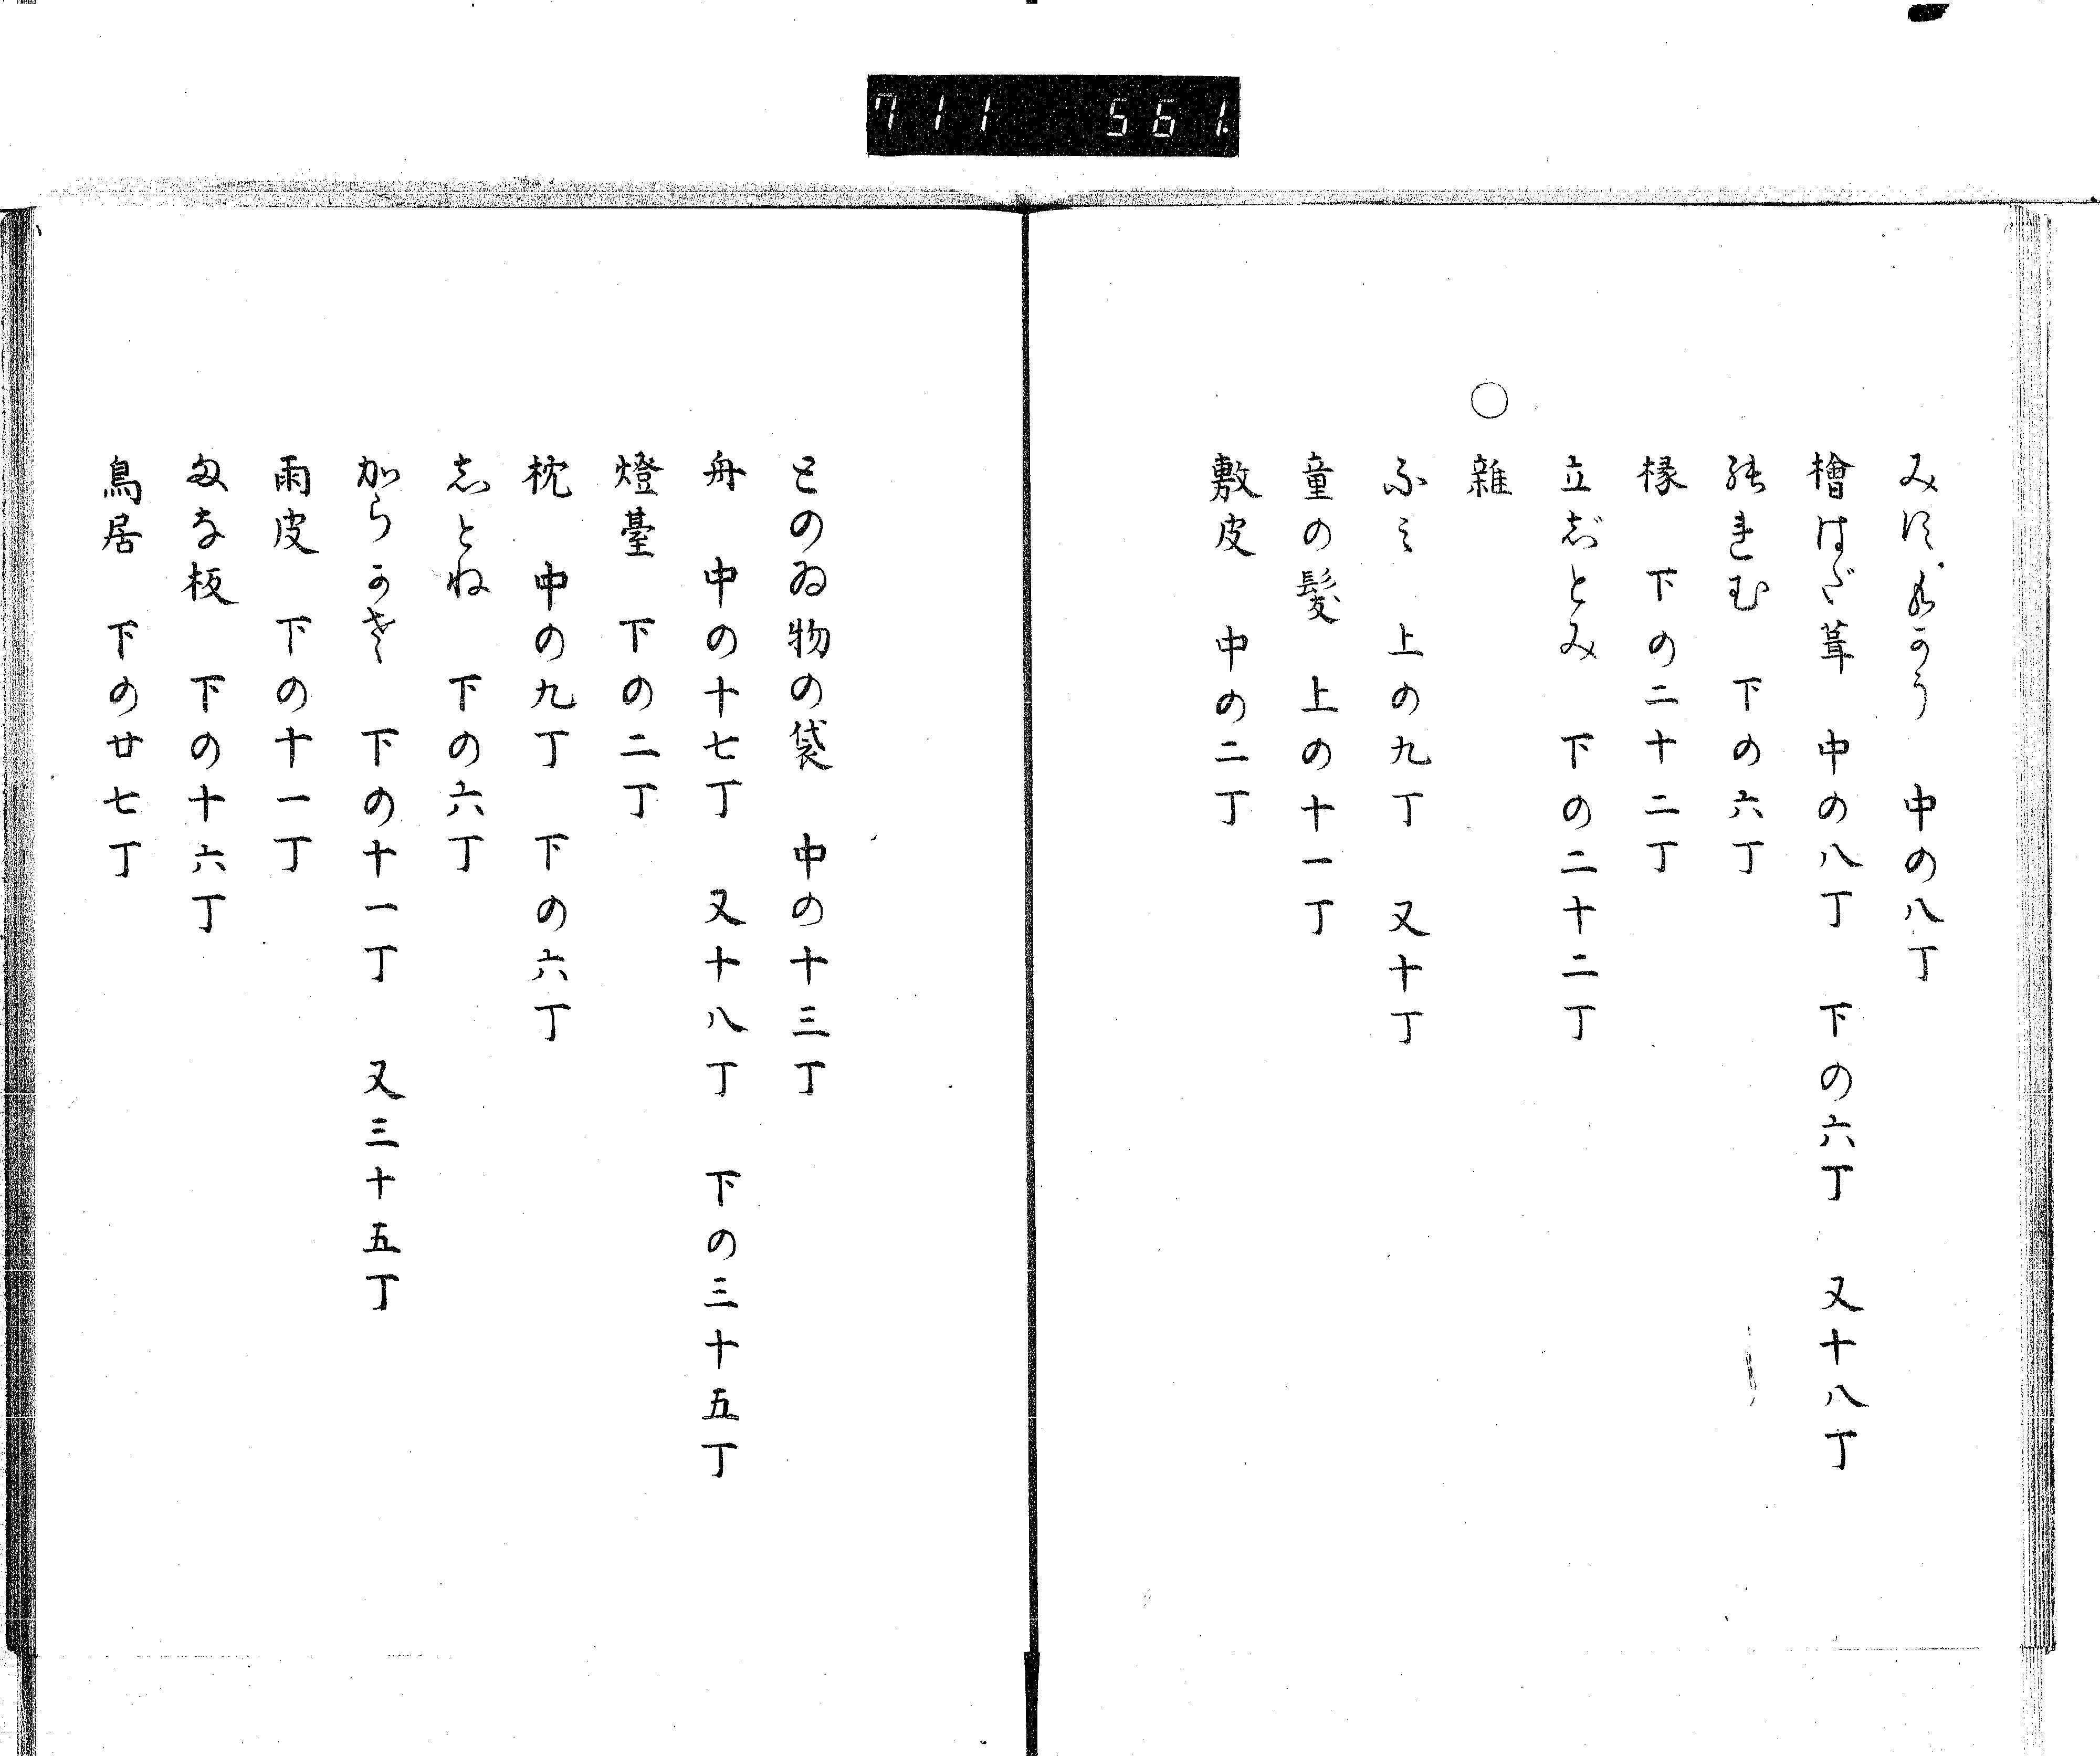 711 561.
みすもかう 中の八丁
檜はだ葺 中の八丁 下の六丁 又十八丁
のれむ 下の六丁
椽 下の二十二丁
立じとみ 下の二十二丁
○雜
ふミ 上の九丁 又十丁
童の髮 上の十一丁
敷皮 中の二丁
とのゐ物の袋 中の十三丁
舟 中の十七丁 又十八丁 下の三十五丁
燈臺 下の二丁
枕 中の九丁 下の六丁
しとね 下の六丁
からかさ 下の十一丁 又三十五丁
雨皮 下の十一丁
まな板 下の十六丁
鳥居 下の廿七丁